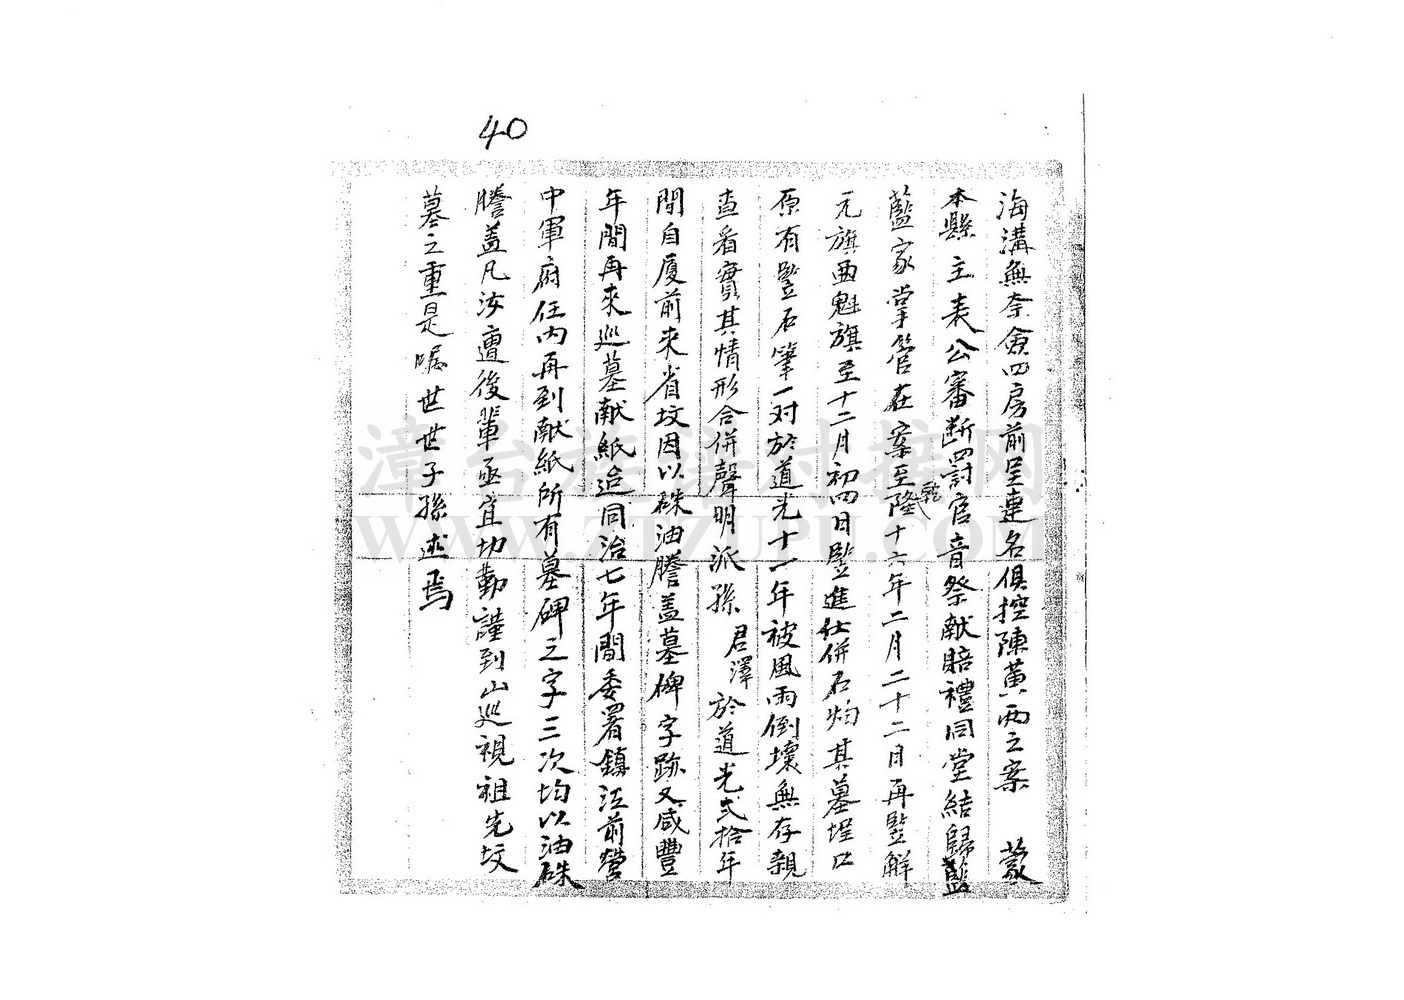 40
海溝無奈僉四房前呈連名俱控陳黃兩之案 蒙
本縣主袁公審断罰官音祭献賠禮同堂結歸藍
藍家掌管在案至乾隆十六年二月二十二日再竪解
元旗西魁旗至十二月初四日竪進仕併石灼其墓埕口
原有竪石筆一对於道光十一年被風雨倒壞無存親
查看實其情形合併聲明派孫君澤於道光弍拾年
間自厦前来省坟因以硃油謄盖墓碑字跡又咸豐
年間再來巡墓献紙迨同治七年間委署鎮江前營
中軍府任內再到献紙所有墓碑之字三次均以油硃
謄盖凡汝曹後輩亟宜切勤謹到山巡視祖先坟
墓之重是嘱世世子孫述焉
漳台族譜对接网
WWW.ZTZUPU.COM